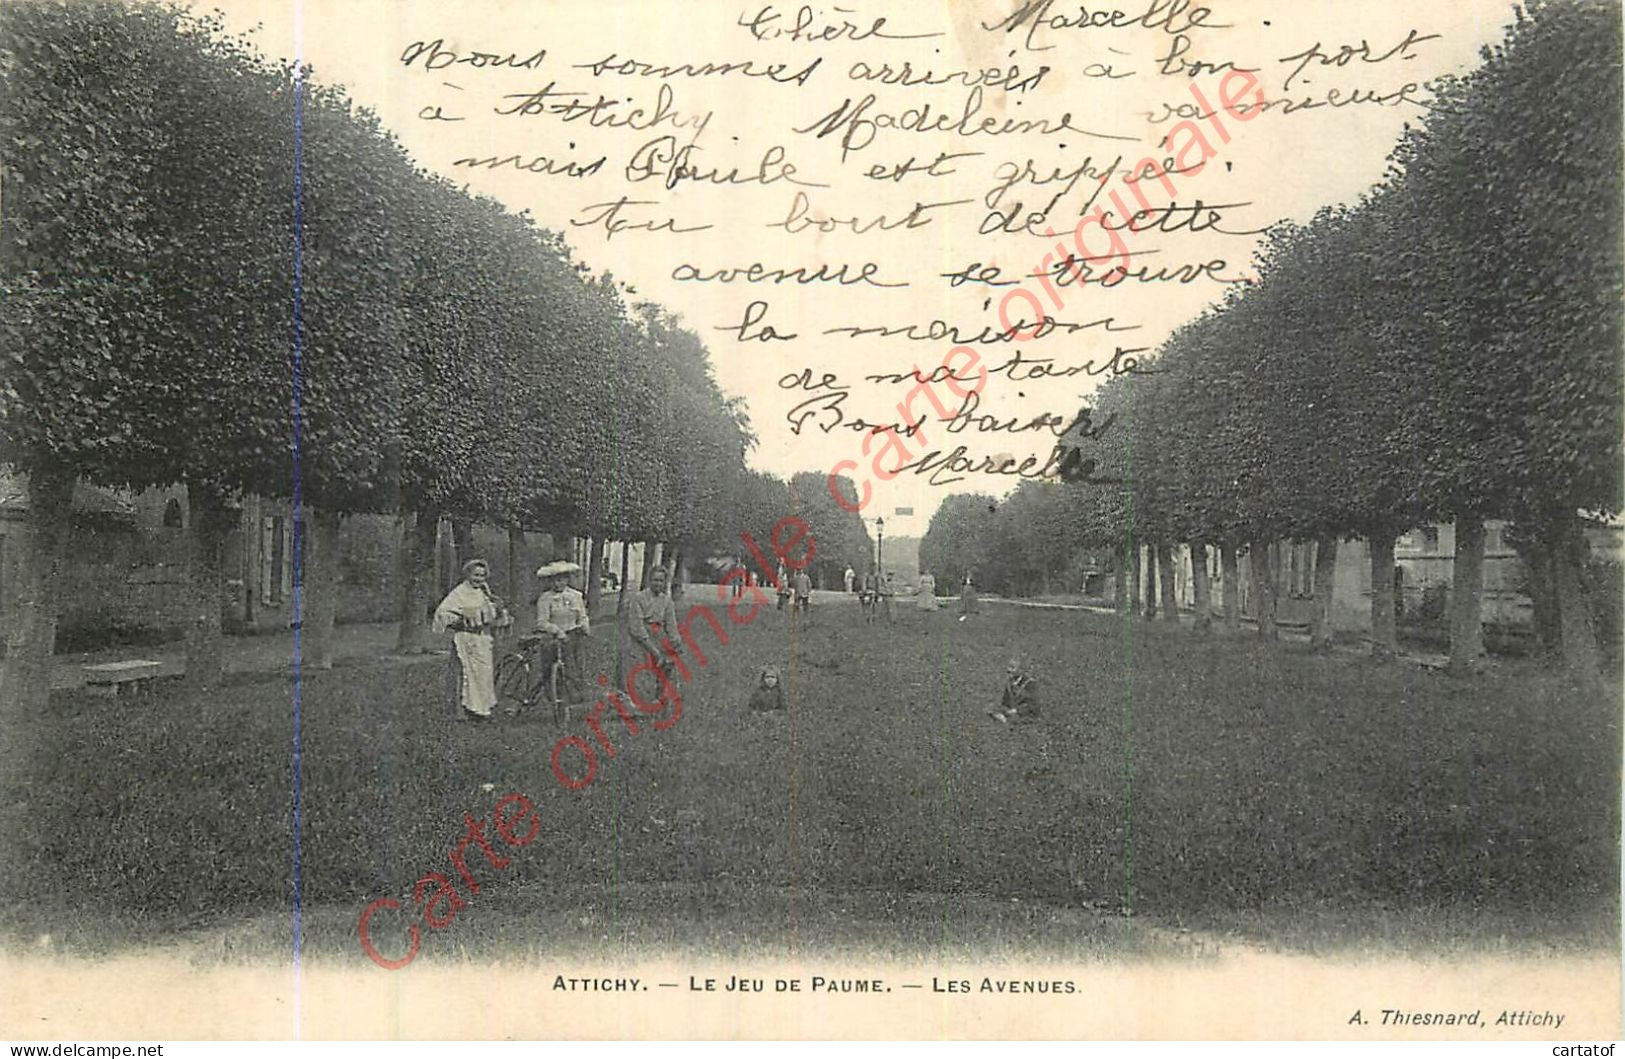 Chère Marcelle.
Nous sommes arrivées à bon port
à Attichy Madeleine va mieux
mais Paule est grippée.
Au bout de cette
avenue se trouve
la maison
de ma tante
Bons baisers
Marcelle
Carte originale carte originale carte originale
ATTICHY. — LE JEU DE PAUME. — LES AVENUES.
A. Thiesnard, Attichy
cartatof